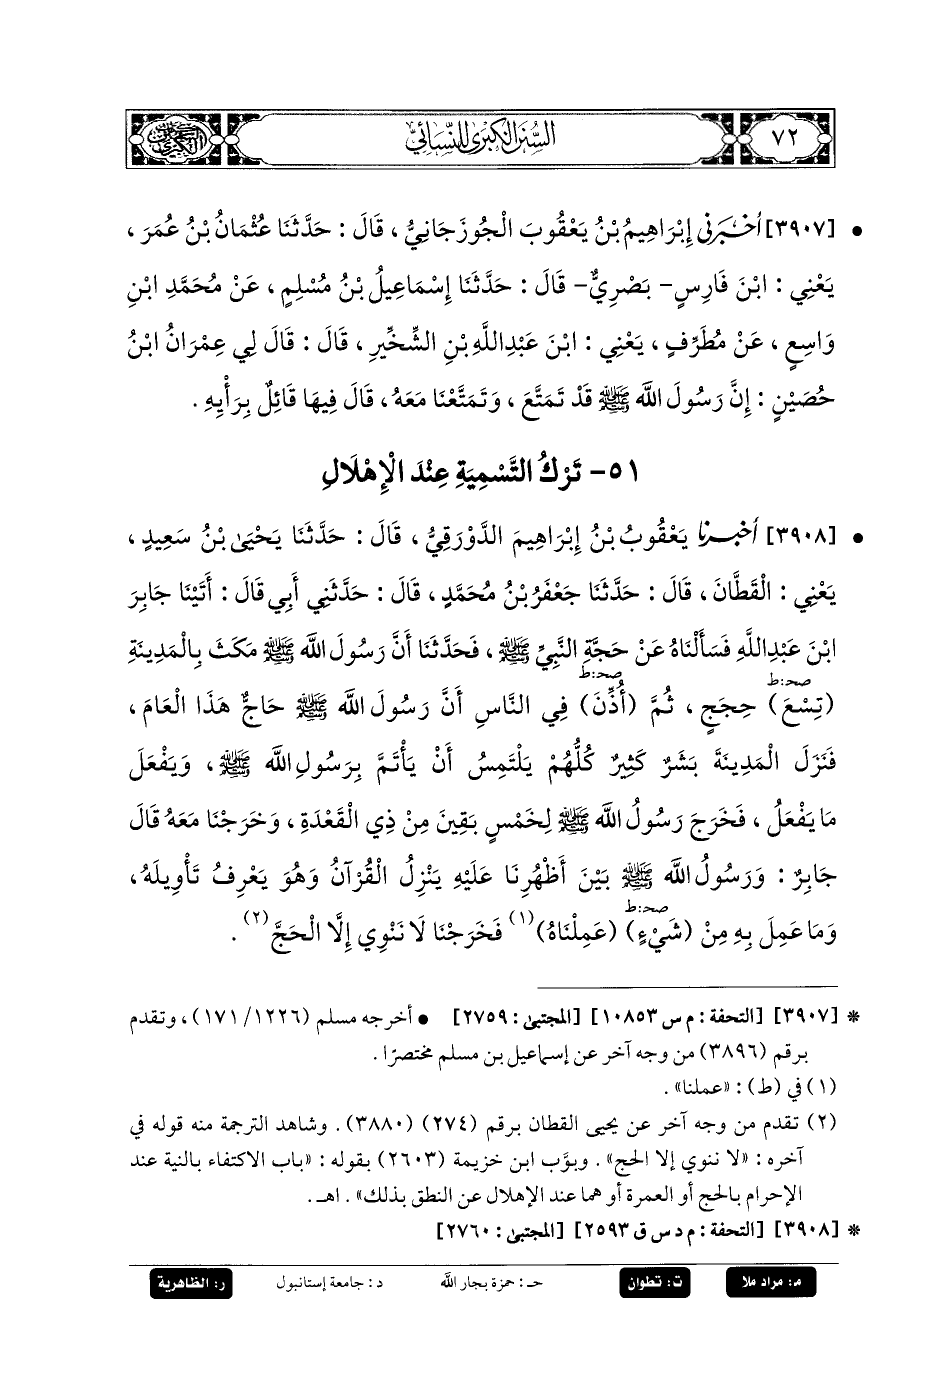 ٧٢
السُّنَنُ الْكُبْرَى لِلنَّسَائِيِّ
• [٣٩٠٧] أَخْبَرَنِي إِبْرَاهِيمُ بْنُ يَعْقُوبَ الْجُوزَجَانِيُّ ، قَالَ : حَدَّثَنَا عُثْمَانُ بْنُ عُمَرَ ،
يَعْنِي : ابْنَ فَارِسٍ - بَصْرِيٌّ - قَالَ : حَدَّثَنَا إِسْمَاعِيلُ بْنُ مُسْلِمٍ ، عَنْ مُحَمَّدِ ابْنِ
وَاسِعٍ ، عَنْ مُطَرِّفٍ ، يَعْنِي : ابْنَ عَبْدِاللَّهِ بْنِ الشِّخِّيرِ ، قَالَ : قَالَ لِي عِمْرَانُ ابْنُ
حُصَيْنٍ : إِنَّ رَسُولَ اللَّهِ ﷺ قَدْ تَمَتَّعَ ، وَتَمَتَّعْنَا مَعَهُ ، قَالَ فِيهَا قَائِلٌ بِرَأْيِهِ .
٥١ - تَرْكُ التَّسْمِيَةِ عِنْدَ الْإِهْلَالِ
• [٣٩٠٨] أَخْبَرَنَا يَعْقُوبُ بْنُ إِبْرَاهِيمَ الدَّوْرَقِيُّ ، قَالَ : حَدَّثَنَا يَحْيَى بْنُ سَعِيدٍ ،
يَعْنِي : الْقَطَّانَ ، قَالَ : حَدَّثَنَا جَعْفَرُ بْنُ مُحَمَّدٍ ، قَالَ : حَدَّثَنِي أَبِي قَالَ : أَتَيْنَا جَابِرَ
ابْنَ عَبْدِاللَّهِ فَسَأَلْنَاهُ عَنْ حَجَّةِ النَّبِيِّ ﷺ ، فَحَدَّثَنَا أَنَّ رَسُولَ اللَّهِ ﷺ مَكَثَ بِالْمَدِينَةِ
صحـ:ط صحـ:ط
(تِسْعَ) حِجَجٍ ، ثُمَّ (أُذِّنَ) فِي النَّاسِ أَنَّ رَسُولَ اللَّهِ ﷺ حَاجٌّ هَذَا الْعَامَ ،
فَنَزَلَ الْمَدِينَةَ بَشَرٌ كَثِيرٌ كُلُّهُمْ يَلْتَمِسُ أَنْ يَأْتَمَّ بِرَسُولِ اللَّهِ ﷺ ، وَيَفْعَلَ
مَا يَفْعَلُ ، فَخَرَجَ رَسُولُ اللَّهِ ﷺ لِخَمْسٍ بَقِينَ مِنْ ذِي الْقَعْدَةِ ، وَخَرَجْنَا مَعَهُ قَالَ
جَابِرٌ : وَرَسُولُ اللَّهِ ﷺ بَيْنَ أَظْهُرِنَا عَلَيْهِ يَنْزِلُ الْقُرْآنُ وَهُوَ يَعْرِفُ تَأْوِيلَهُ ،
صحـ:ط
وَمَا عَمِلَ بِهِ مِنْ (شَيْءٍ) (عَمِلْنَاهُ)(١) فَخَرَجْنَا لَا نَنْوِي إِلَّا الْحَجَّ(٢) .
* [٣٩٠٧] [التحفة : م س ١٠٨٥٣] [المجتبى : ٢٧٥٩] • أخرجه مسلم (١٢٢٦/ ١٧١) ، وتقدم
برقم (٣٨٩٦) من وجه آخر عن إسماعيل بن مسلم مختصرًا .
(١) في (ط) : «عملنا» .
(٢) تقدم من وجه آخر عن يحيى القطان برقم (٢٧٤) (٣٨٨٠) . وشاهد الترجمة منه قوله في
آخره : «لا ننوي إلا الحج» . وبوَّب ابن خزيمة (٢٦٠٣) بقوله : «باب الاكتفاء بالنية عند
الإحرام بالحج أو العمرة أو هما عند الإهلال عن النطق بذلك» . اهـ.
* [٣٩٠٨] [التحفة : م د س ق ٢٥٩٣] [المجتبى : ٢٧٦٠]
م: مراد ملا ت: تطوان حـ : حمزة بجار الله د : جامعة إستانبول ر: الظاهرية